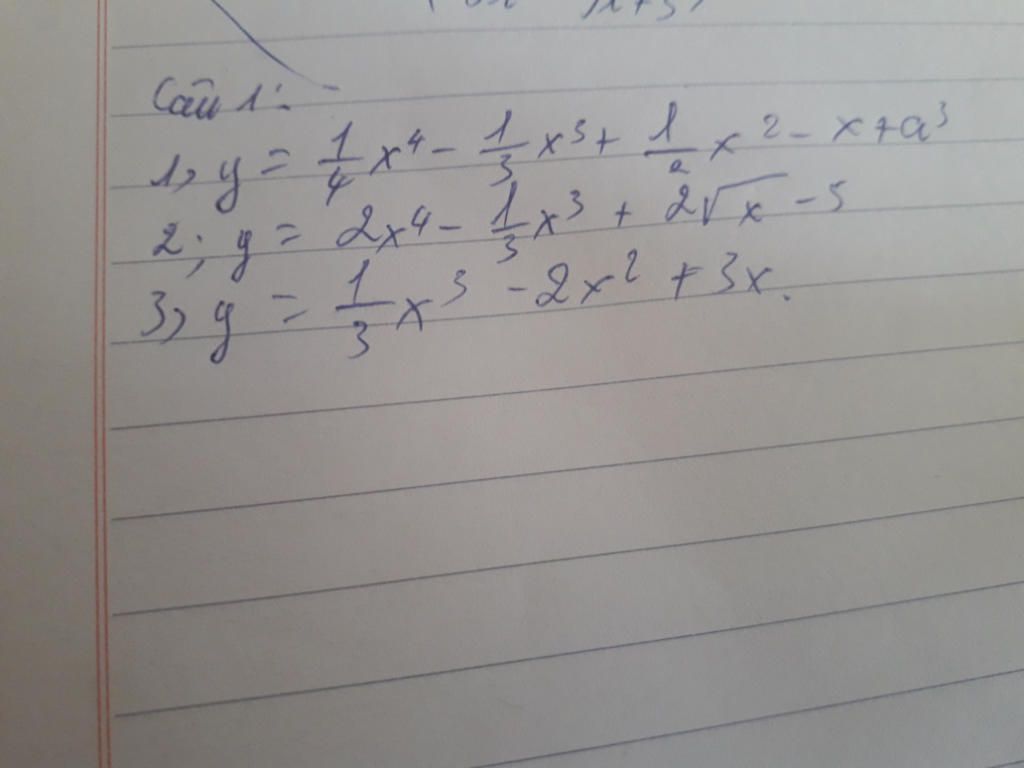 Câu 1:
1, y = 1/4 x⁴ - 1/3 x³ + 1/2 x² - x + a³
2; y = 2x⁴ - 1/3 x³ + 2√x - 5
3, y = 1/3 x³ - 2x² + 3x.